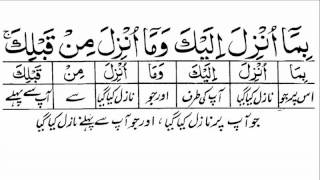 بِمَآ اُنْزِلَ اِلَيْكَ وَمَآ اُنْزِلَ مِنْ قَبْلِكَ ۚ
بِمَآ اُنْزِلَ اِلَيْكَ وَمَآ اُنْزِلَ مِنْ قَبْلِكَ
اس پر جو نازل کیا گیا آپ کی طرف اور جو نازل کیا گیا سے آپ سے پہلے
جو آپ پر نازل کیا گیا ، اور جو آپ سے پہلے نازل کیا گیا